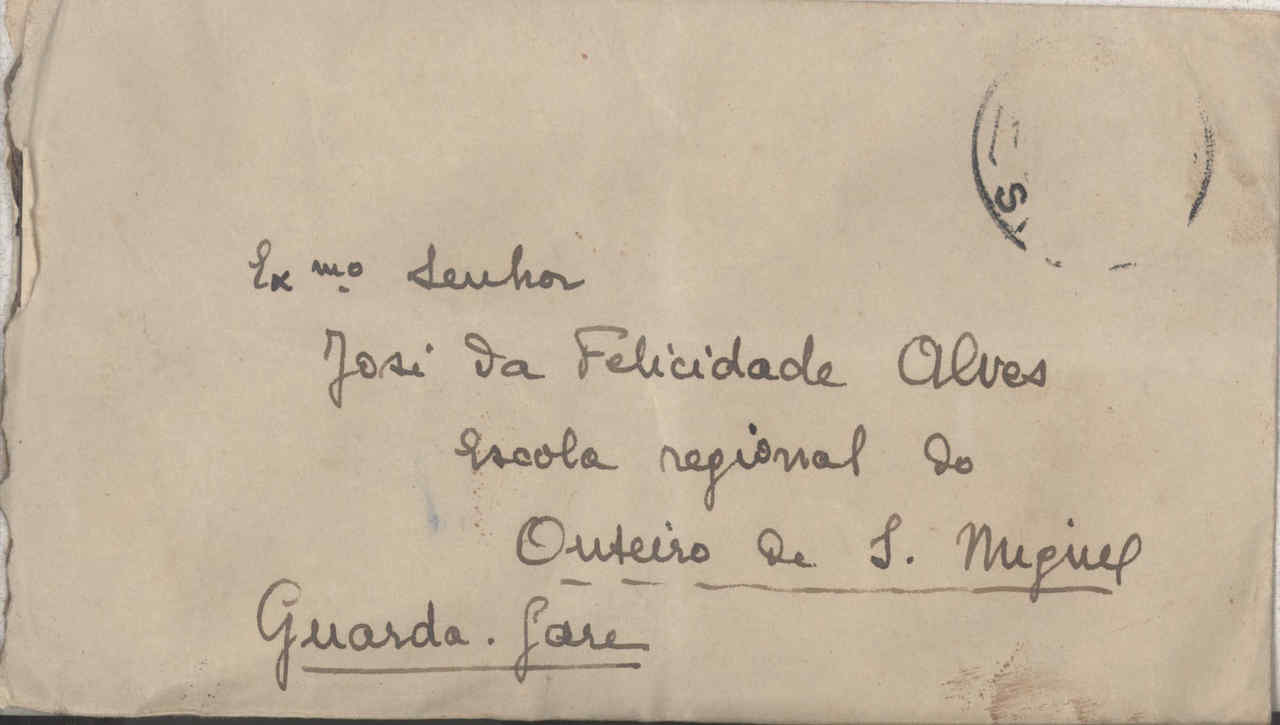 Exmo. Senhor
José da Felicidade Alves
Escola regional do
Outeiro de S. Miguel
Guarda. Gare